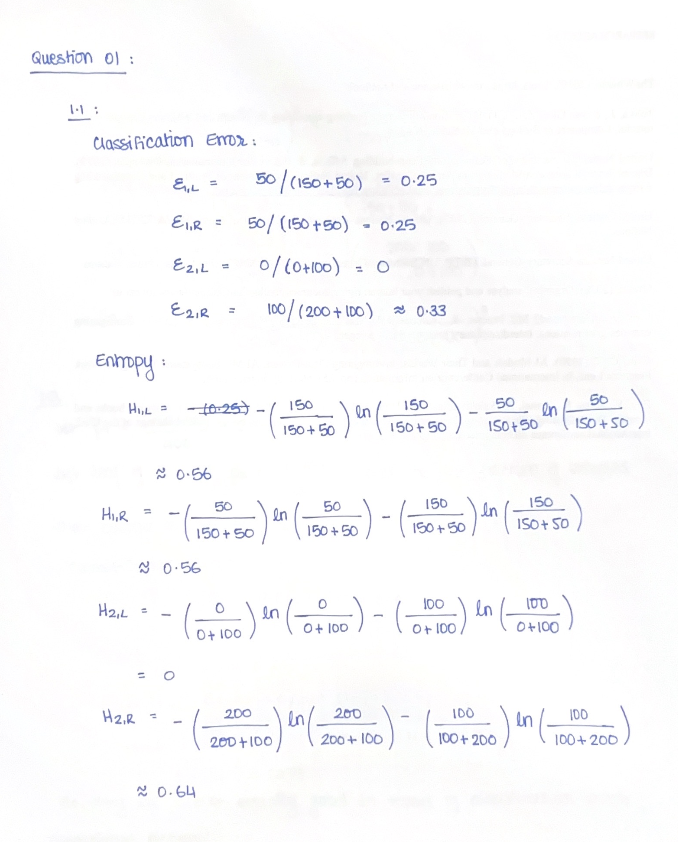 Question 01 :
1.1 :
Classification Error :
ℰ₁,L = 50/(150+50) = 0.25
ℰ₁,R = 50/(150+50) = 0.25
ℰ₂,L = 0/(0+100) = 0
ℰ₂,R = 100/(200+100) ≈ 0.33
Entropy :
H₁,L = -(0.25) -(150/(150+50)) ln(150/(150+50)) - 50/(150+50) ln(50/(150+50))
≈ 0.56
H₁,R = -(50/(150+50)) ln(50/(150+50)) - (150/(150+50)) ln(150/(150+50))
≈ 0.56
H₂,L = -(0/(0+100)) ln(0/(0+100)) - (100/(0+100)) ln(100/(0+100))
= 0
H₂,R = -(200/(200+100)) ln(200/(200+100)) - (100/(100+200)) ln(100/(100+200))
≈ 0.64